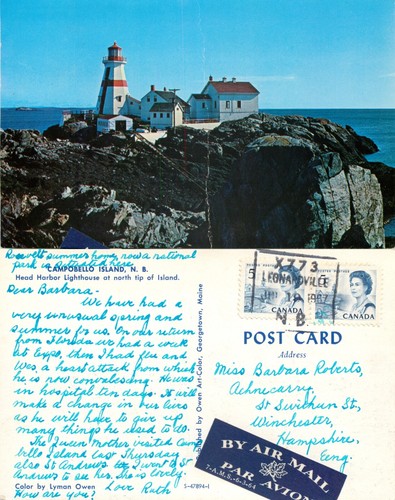 Roosevelt summer home, now a national
park is situated here.
CAMPOBELLO ISLAND, N. B.
Head Harbor Lighthouse at north tip of Island.
Dear Barbara -
We have had a
very unusual spring and
summer for us. On our return
from Florida we had a week
at Expo, then I had flu and
Wes, a heart attack from which
he is now convalescing. He was
in hospital ten days. It will
make a change in our lives
as he will have to give up
many things he used to do.
The Queen Mother visited Campo
bello Island last Thursday,
also St Andrews. I went to St
Andrews to see her. She is lovely.
How are you? Love Ruth
Color by Lyman Owen
S-47894-1
Published by Owen Art-Color, Georgetown, Maine
X773
LEONARDVILLE
1967
N B
5
CANADA
5
CANADA
POST CARD
Address
Miss Barbara Roberts,
Achnecarry,
St Swithun St,
Winchester,
Hampshire,
Eng.
BY AIR MAIL
7-A.M.S.-6-3-64
PAR AVION